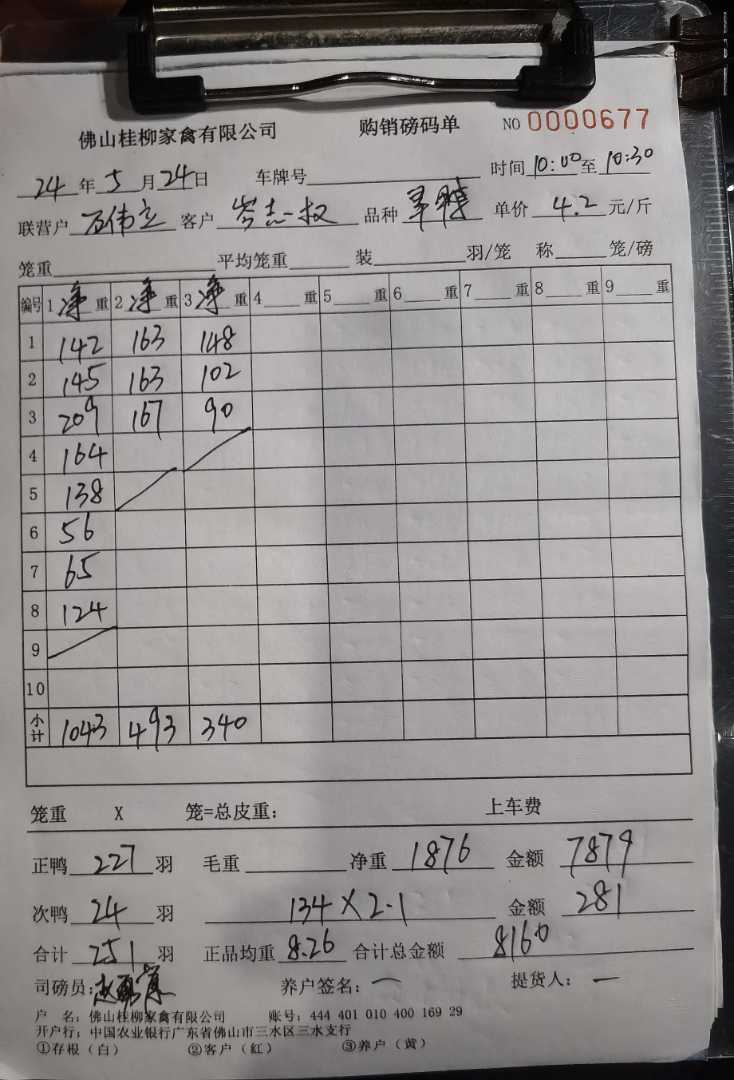 佛山桂柳家禽有限公司 购销磅码单 NO 0000677
24年5月24日 车牌号 时间10:00至10:30
联营户 伟立 客户 岑志权 品种 单价 4.2 元/斤
笼重 平均笼重 装 羽/笼 称 笼/磅
编号 1 净 重 2 净 重 3 净 重 4 重 5 重 6 重 7 重 8 重 9 重
1 142 163 148
2 145 163 102
3 209 167 90
4 164
5 138
6 56
7 65
8 124
9
10
小计 1043 493 340
笼重 X 笼=总皮重: 上车费
正鸭 227 羽 毛重 净重 1876 金额 7879
次鸭 24 羽 134×2.1 金额 281
合计 251 羽 正品均重 8.26 合计总金额 8160
司磅员: 赵 养户签名: 一 提货人: 一
户 名: 佛山桂柳家禽有限公司 账号: 444 401 010 400 169 29
开户行: 中国农业银行广东省佛山市三水区三水支行
①存根(白) ②客户(红) ③养户(黄)